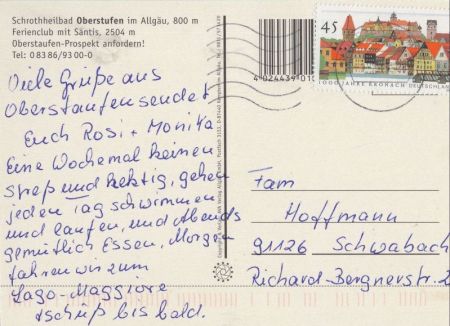 Schrothheilbad Oberstufen im Allgäu, 800 m
Ferienclub mit Säntis, 2504 m
Oberstaufen-Prospekt anfordern!
Tel: 0 83 86/93 00-0
Viele Grüße aus
Oberstaufen sendet
Euch Rosi + Monika
Eine Woche mal keinen
streß und hektig, gehen
jeden Tag schwimmen
und laufen, und Abends
gemütlich Essen, Morgen
fahren wir zum
Lago-Maggiore
tschüß bis bald.
4 024439 01
45
1000 JAHRE KRONACH DEUTSCHLAND
Fam
Hoffmann
91126 Schwabach
Richard-Bergnerstr.